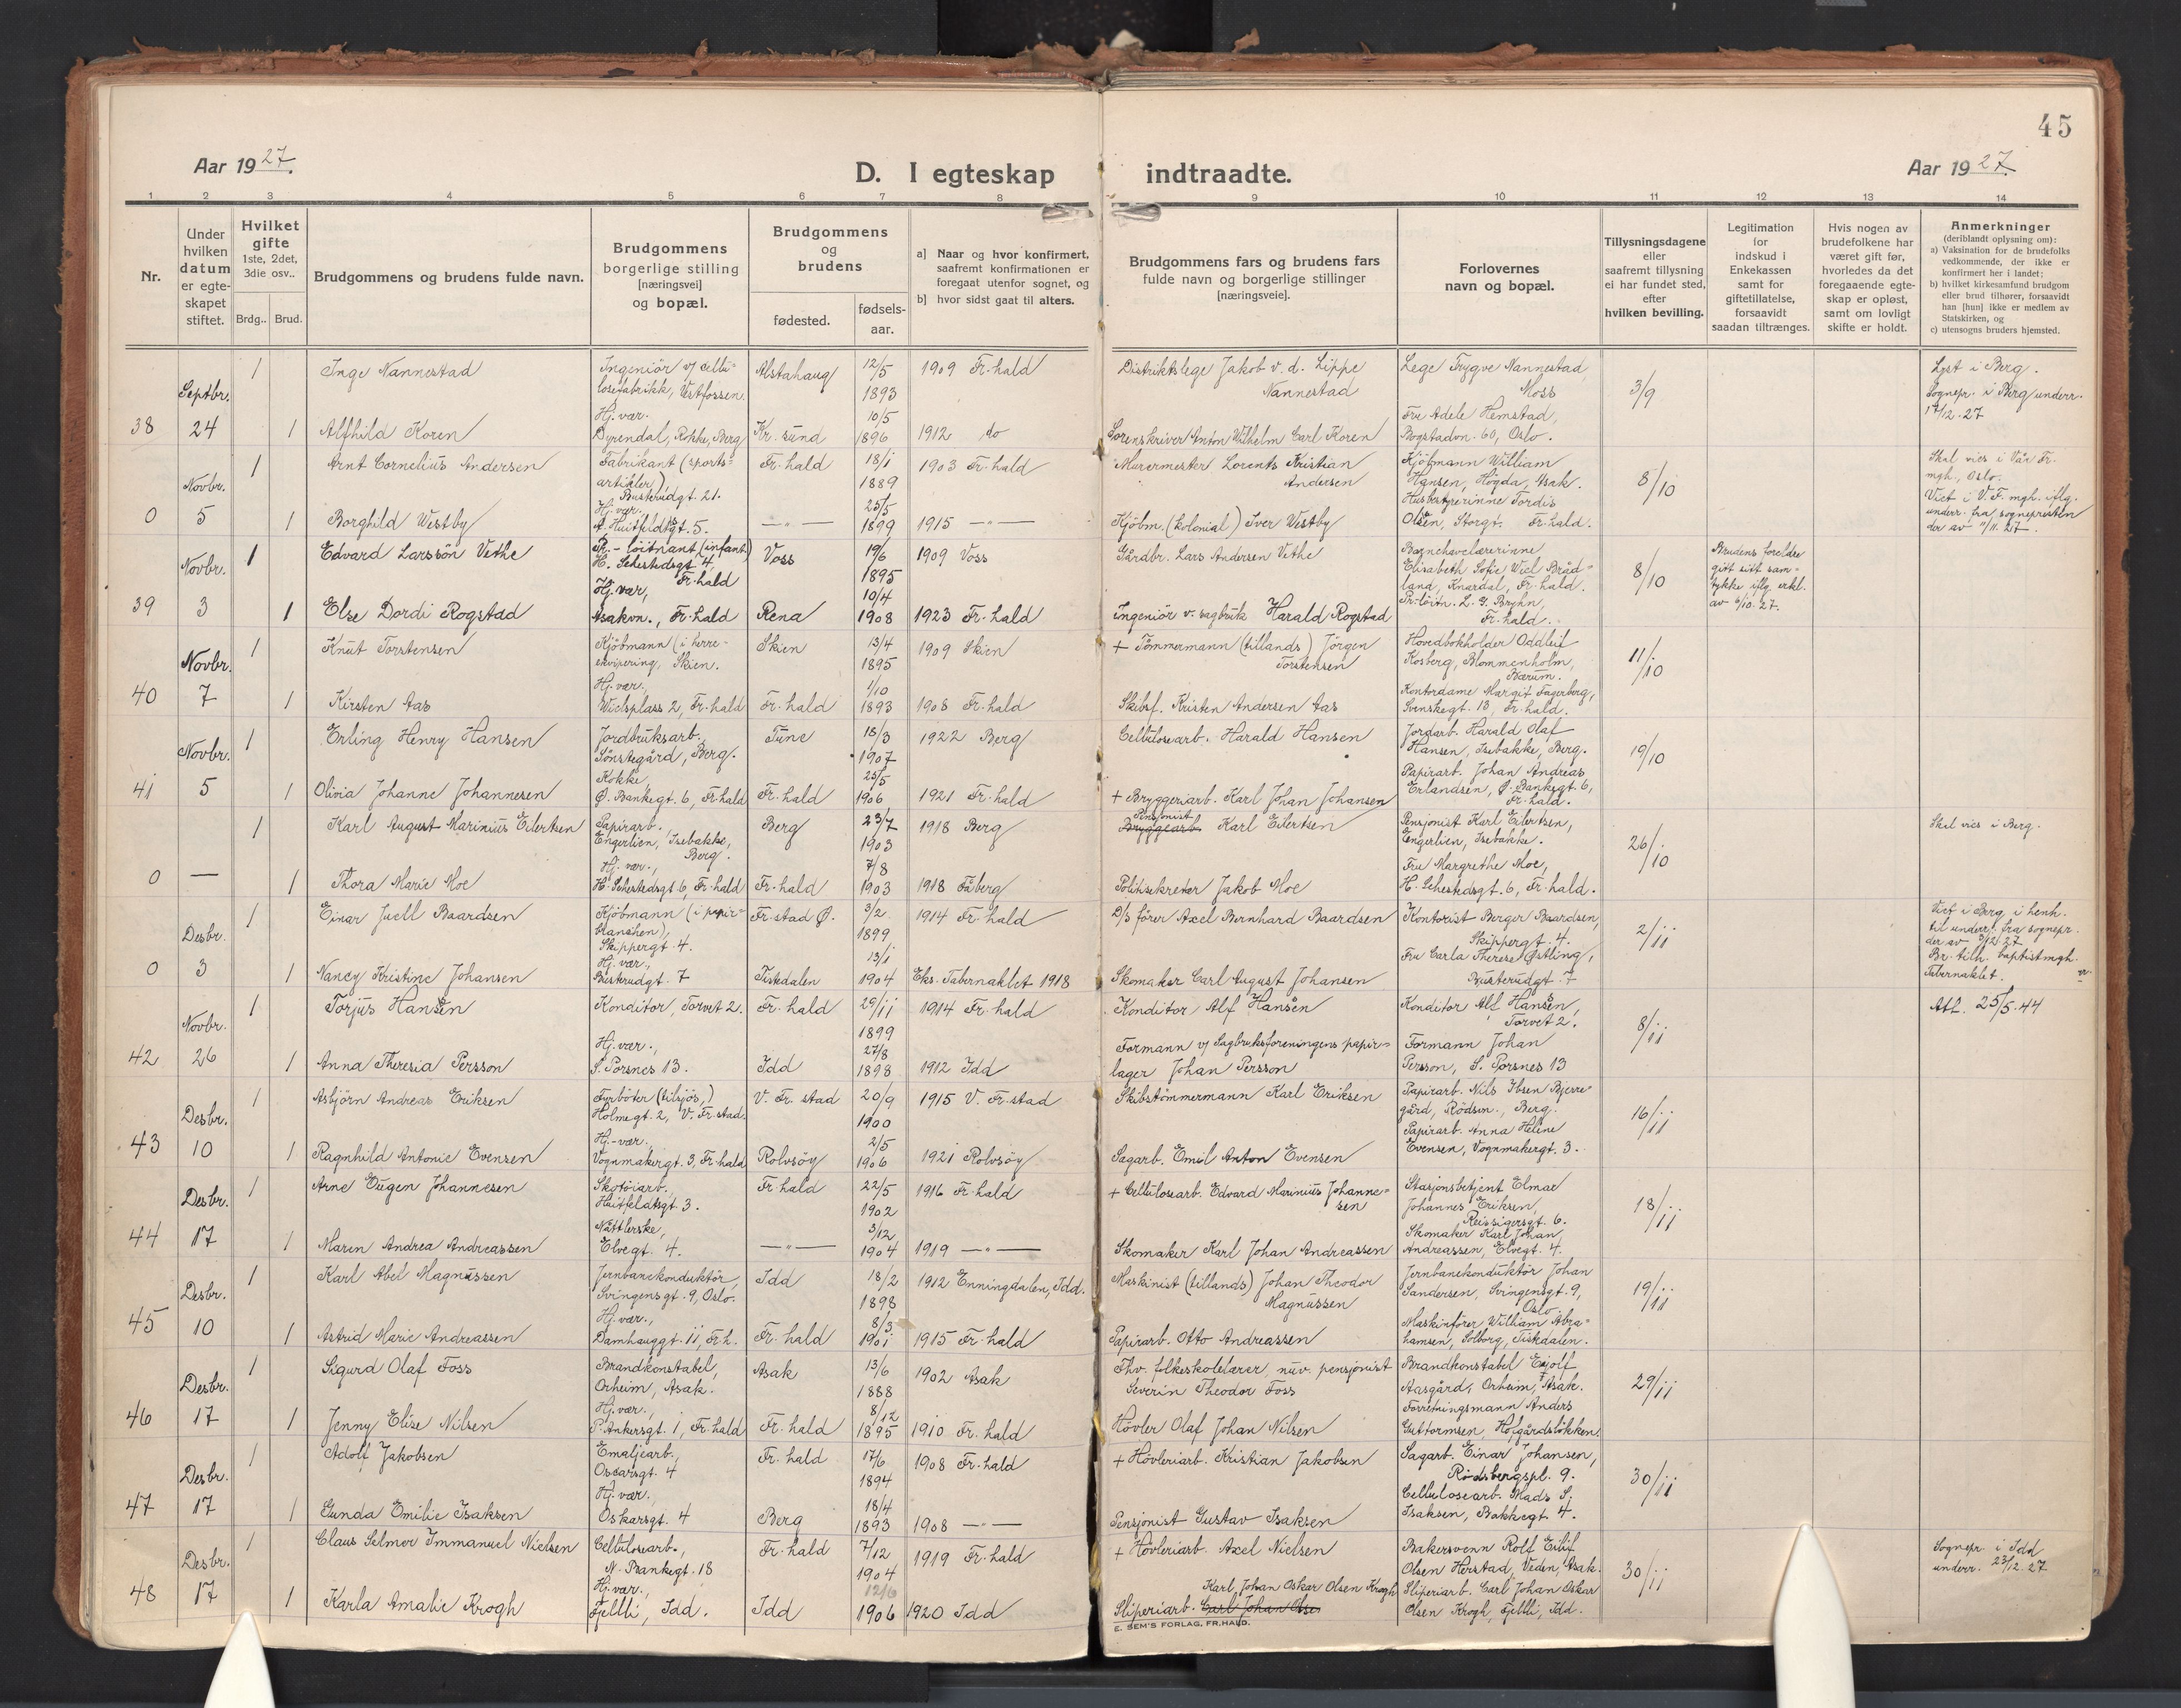 45
Aar 1927.
D. I egteskap indtraadte.
Aar 1927.
1 2 3 4 5 6 7 8 9 10 11 12 13 14
Nr.
Under hvilken datum er egteskapet stiftet.
Hvilket gifte 1ste, 2det, 3die osv..
Brdg.. Brud.
Brudgommens og brudens fulde navn.
Brudgommens borgerlige stilling [næringsvei] og bopæl.
Brudgommens og brudens
fødested.
fødsels-aar.
a) Naar og hvor konfirmert, saafremt konfirmationen er foregaat utenfor sognet, og
b) hvor sidst gaat til alters.
Brudgommens fars og brudens fars fulde navn og borgerlige stillinger [næringsveie].
Forlovernes navn og bopæl.
Tillysningsdagene eller saafremt tillysning ei har fundet sted, efter hvilken bevilling.
Legitimation for indskud i Enkekassen samt for giftetillatelse, forsaavidt saadan tiltrænges.
Hvis nogen av brudefolkene har været gift før, hvorledes da det foregaaende egteskap er opløst, samt om lovligt skifte er holdt.
Anmerkninger (deriblandt oplysning om):
a) Vaksination for de brudefolks vedkommende, der ikke er konfirmert her i landet;
b) hvilket kirkesamfund brudgom eller brud tilhører, forsaavidt han [hun] ikke er medlem av Statskirken, og
c) utensogns bruders hjemsted.
1 Inge Nannestad Ingeniör v/ cellulosefabrikk, Vestfossen. Alstahaug 12/5 1893 1909 Fr.hald Distriktslege Jakob v. d. Lippe Nannestad Lege Trygve Nannestad, Moss 3/9 Lyst i Berg. Sognepr. i Berg underr. 17/12.27
38 Septbr. 24 1 Alfhild Koren Hj. vær. Dyrendal, Rokke, Berg Kr. sund 10/5 1896 1912 do Sorenskriver Anton Wilhelm Carl Koren Fru Adele Hemstad, Bogstadvn. 60, Oslo.
1 Arnt Cornelius Andersen Fabrikant (sportsartikler) Busterudgt. 21. Fr.hald 18/1 1889 1903 Fr.hald Murermester Lorents Kristian Andersen Kjöbmann William Hansen, Högda, Asak. 8/10 Skal vies i Vår Fr. mgh., Oslo.
0 Novbr. 5 1 Borghild Westby Hj. vær. A. Huitfeldtsgt. 5. —"— 25/5 1899 1915 —"— Kjöbm. (kolonial) Iver Westby Husbestyrerinne Tordis Olsen, Storgt. Fr.hald. Viet i V. F. mgh. iflg. underr. fra sognepresten der av 11/11.27
1 Edvard Larssön Vethe Pr.-löitnant (infant.) H. Sehestedsgt 4, Fr.hald Voss 19/6 1895 1909 Voss Gårdbr. Lars Andersen Vethe Barnehavelærerinne Elisabeth Sofie Wiel Brådland, Knardal, Fr.hald. 8/10 Brudens foreldre gitt sitt samtykke iflg. erkl. av 6/10.27.
39 Novbr. 3 1 Else Dordi Rogstad Hj. vær, Asakvn., Fr.hald Rena 10/4 1908 1923 Fr.hald Ingeniör v. sagbruk Harald Rogstad Pr.-löitn. L. G. Bryhn, Fr.hald.
1 Knut Torstensen Kjöbmann (i herreekvipering, Skien. Skien 13/4 1895 1909 Skien + Tömmermann (tillands) Jörgen Torstensen Hovedbokholder Oddleif Kosberg, Blommenholm, Bærum. 11/10
40 Novbr. 7 1 Kirsten Aas Hj. vær., Wielsplass 2, Fr.hald Fr.hald 1/10 1893 1908 Fr.hald Skibsf. Kristen Andersen Aas Kontordame Margit Fagerberg, Svenskegt. 13, Fr.hald.
1 Erling Henry Hansen Jordbruksarb., Sönstegård, Berg. Tune 18/3 1907 1922 Berg Cellulosearb. Harald Hansen Jordarb. Harald Olaf Hansen, Isebakke, Berg. 19/10
41 Novbr. 5 1 Olivia Johanne Johannesen Kokke, Ø. Bankegt. 6, Fr.hald Fr.hald 25/5 1906 1921 Fr.hald + Bryggeriarb. Karl Johan Johansen Papirarb. Johan Andreas Erlandsen, Ø. Bankegt. 6, Fr.hald.
1 Karl August Marinius Eilertsen Papirarb., Engerlien, Isebakke, Berg. Berg 23/7 1903 1918 Berg Pensjonist Bryggearb. Karl Eilertsen Pensjonist Karl Eilertsen, Engerlien, Isebakke. 26/10 Skal vies i Berg.
0 — 1 Thora Marie Moe Hj. vær., H. Sehestedsgt 6, Fr.hald Fr.hald 7/8 1903 1918 Fåberg Politisekretær Jakob Moe Fru Margrethe Moe, H. Sehestedsgt. 6, Fr.hald.
1 Einar Juell Baardsen Kjöbmann (i papirbranchen), Skippergt. 4. Fr.stad Ø. 3/2 1899 1914 Fr.hald D/S förer Axel Bernhard Baardsen Kontorist Berger Baardsen, Skippergt. 4. 2/11 Viet i Berg i henh. til underr. fra sognepr. der av 3/12 27
0 Desbr. 3 1 Nancy Kristine Johansen Hj. vær., Busterudgt. 7 Tistedalen 13/1 1904 Eks. Tabernaklet 1918 Skomaker Carl August Johansen Fru Carla Therese Østling, Busterudgt. 7 Br. tilh. baptistmgh. Tabernaklet.
1 Torjus Hansen Konditor, Torvet 2. Fr.hald 29/11 1899 1914 Fr.hald Konditor Alf Hansen Konditor Alf Hansen, Torvet 2. 8/11 Att. 25/5.44
42 Novbr. 26 1 Anna Theresia Persson Hj. vær., S. Porsnes 13. Idd 27/8 1898 1912 Idd Formann v/ Sagbruksforeningens papirlager Johan Persson Formann Johan Persson, S. Porsnes 13
1 Asbjörn Andreas Eriksen Fyrböter (tilsjös,) Holmegt. 2, V. Fr.stad. V. Fr. stad 20/9 1900 1915 V. Fr.stad Skibstömmermann Karl Eriksen Papirarb. Nils Ibsen Bjerregård, Rödsvn., Berg. 16/11
43 Desbr. 10 1 Ragnhild Antonie Evensen Hj.-vær., Vognmakergt. 3, Fr.hald Rolvsöy 2/5 1906 1921 Rolvsöy Sagarb. Emil Anton Evensen Papirarb. Anna Helene Evensen, Vognmakergt. 3.
1 Arne Eugen Johannesen Skotöiarb., Huitfeldtsgt. 3. Fr.hald 22/5 1902 1916 Fr.hald + Cellulosearb. Edvard Marinius Johannesen Stasjonsbetjent Elmar Johannes Eriksen, Reissigersgt. 6. 18/11
44 Desbr. 17 1 Maren Andrea Andreassen Nåttlerske, Elvegt. 4. —"— 3/12 1904 1919 —"— Skomaker Karl Johan Andreassen Skomaker Karl Johan Andreassen, Elvegt. 4.
1 Karl Abel Magnussen Jernbanekonduktör, Svingensgt. 9, Oslo. Idd 18/2 1898 1912 Enningdalen, Idd. Maskinist (tillands) Johan Theodor Magnussen Jernbanekonduktör Johan Sandersen, Svingensgt. 9, Oslo 19/11
45 Desbr. 10 1 Astrid Marie Andreassen Hj. vær., Damhauggt. 11, Fr.h. Fr.hald 8/3 1901 1915 Fr.hald Papirarb. Otto Andreassen Maskinförer William Abrahamsen, Solborg, Tistedalen.
1 Sigurd Olaf Foss Brandkonstabel, Orheim, Asak. Asak 13/6 1888 1902 Asak Fhv. folkeskolelærer, nuv. pensjonist Severin Theodor Foss Brandkonstabel Ejolf Aasgård, Orheim, Asak. 29/11
46 Desbr. 17 1 Jenny Elise Nilsen Hj. vær., P. Ankersgt. 1, Fr.hald Fr.hald 8/12 1895 1910 Fr.hald Hövler Olaf Johan Nilsen Forretningsmann Anders Guttormsen, Hofgårdslökken.
1 Adolf Jakobsen Emaljearb., Oscarsgt. 4 Fr.hald 17/6 1894 1908 Fr.hald + Hövleriarb. Kristian Jakobsen Sagarb. Einar Johansen, Rödsbergspl. 9. 30/11
47 Desbr. 17 1 Gunda Emilie Isaksen Hj. vær., Oskarsgt. 4 Berg 18/4 1893 1908 —"— Pensjonist Gustav Isaksen Cellulosearb. Mads S. Isaksen, Bakkegt. 4.
1 Claus Selmer Immanuel Nielsen Cellulosearb., N. Bankegt. 18 Fr.hald 7/12 1904 1919 Fr.hald + Hövleriarb. Axel Nielsen Bakersvenn Rolf Eilif Olsen Herstad, Veden, Asak. 30/11 Sognepr. i Idd underr. 23/12.27
48 Desbr. 17 1 Karla Amalie Krogh Hj. vær., Fjellli, Idd. Idd 12/6 1906 1920 Idd Sliperiarb. Carl Johan Olsen Karl Johan Oskar Olsen Krogh Sliperiarb. Carl Johan Oskar Olsen Krogh, Fjellli, Idd.
E. SEM'S FORLAG, FR.HALD.